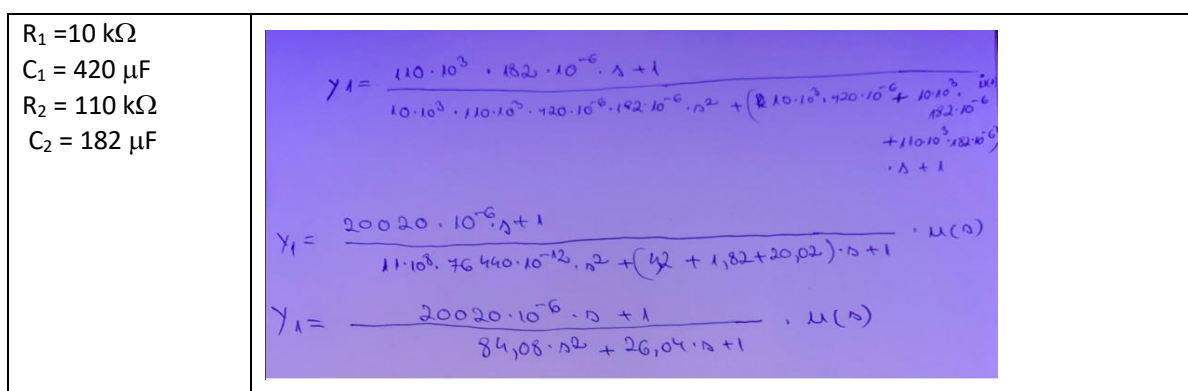 R₁ =10 kΩ
C₁ = 420 μF
R₂ = 110 kΩ
C₂ = 182 μF
y1 = 110·10³ · 182·10⁻⁶·s +1
10·10³ · 110·10³ · 420·10⁻⁶·182·10⁻⁶·s² + ( 10·10³·420·10⁻⁶ + 10·10³·
182·10⁻⁶
+110·10³·182·10⁻⁶)
·s + 1
y₁ = 20020·10⁻⁶·s+1
11·10⁸· 76440·10⁻¹²·s² + (4,2 + 1,82+20,02)·s+1 · u(s)
y₁ = 20020·10⁻⁶·s +1
84,08·s² + 26,04·s+1 · u(s)